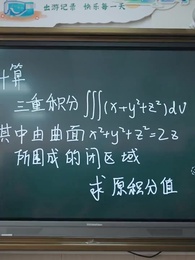 出游记录 快乐每一天
计算
三重积分∭(x+y²+z²)dV
其中由曲面 x²+y²+z²=2z
所围成的闭区域
求 原积分值